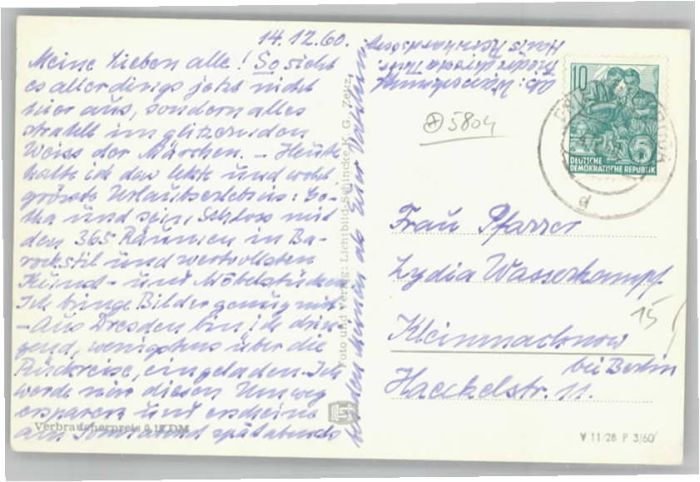 14.12.60.
Meine lieben alle! So sieht
es allerdings jetzt nicht
hier aus, sondern alles
strahlt im glitzernden
Weiss der Märchen. – Heute
hatte ich das letzte und wohl
grösste Urlaubserlebnis: Go-
tha und sein Schloss mit
den 365 Räumen in Ba-
rockstil und wertvollsten
Kunst- und Möbelstücken
Ich bringe Bilder genug mit
– Aus Dresden bin ich drin-
gend, wenigstens über die
Rückreise, eingeladen. Ich
werde mir diesen Umweg
ersparen und erscheine
am Sonnabend spät abends
Verbraucherpreis 0,15 DM
Foto und Verlag: Lichtbild K. G.
5804
10
5
DEUTSCHE
DEMOKRATISCHE REPUBLIK
d
Frau Pfarrer
Lydia Wasserkampf
15
Kleinmachnow
bei Berlin
Haeckelstr. 11.
V 11/28 P 3/60